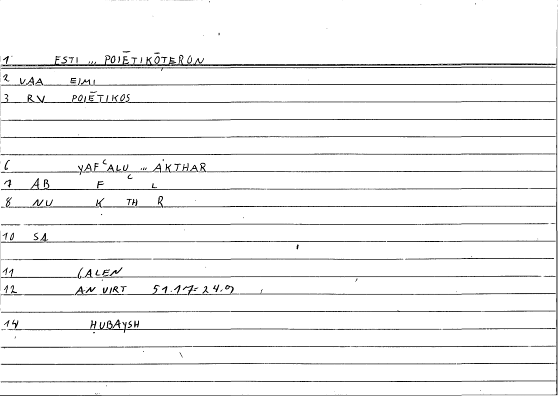 1 ESTI ... POIĒTIKŌTERON
2 VAA EIMI
3 RV POIĒTIKOS
6 YAFʿALU ... AKTHAR
7 AB F ʿ L
8 NU K TH R
10 SA
11 GALEN
12 AN VIRT 51.17-24.9
14 ḤUBAYSH